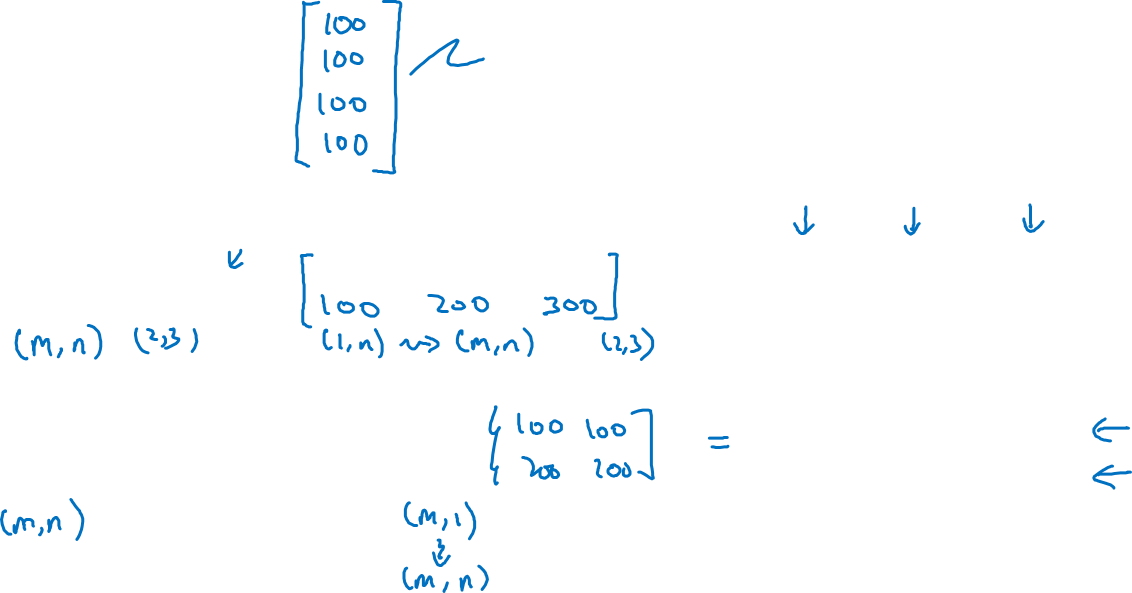 100
100
100
100
100 200 300
(m,n) (2,3) (1,n) ⇝ (m,n) (2,3)
100 100 =
200 200
(m,n) (m,1)
(m,n)